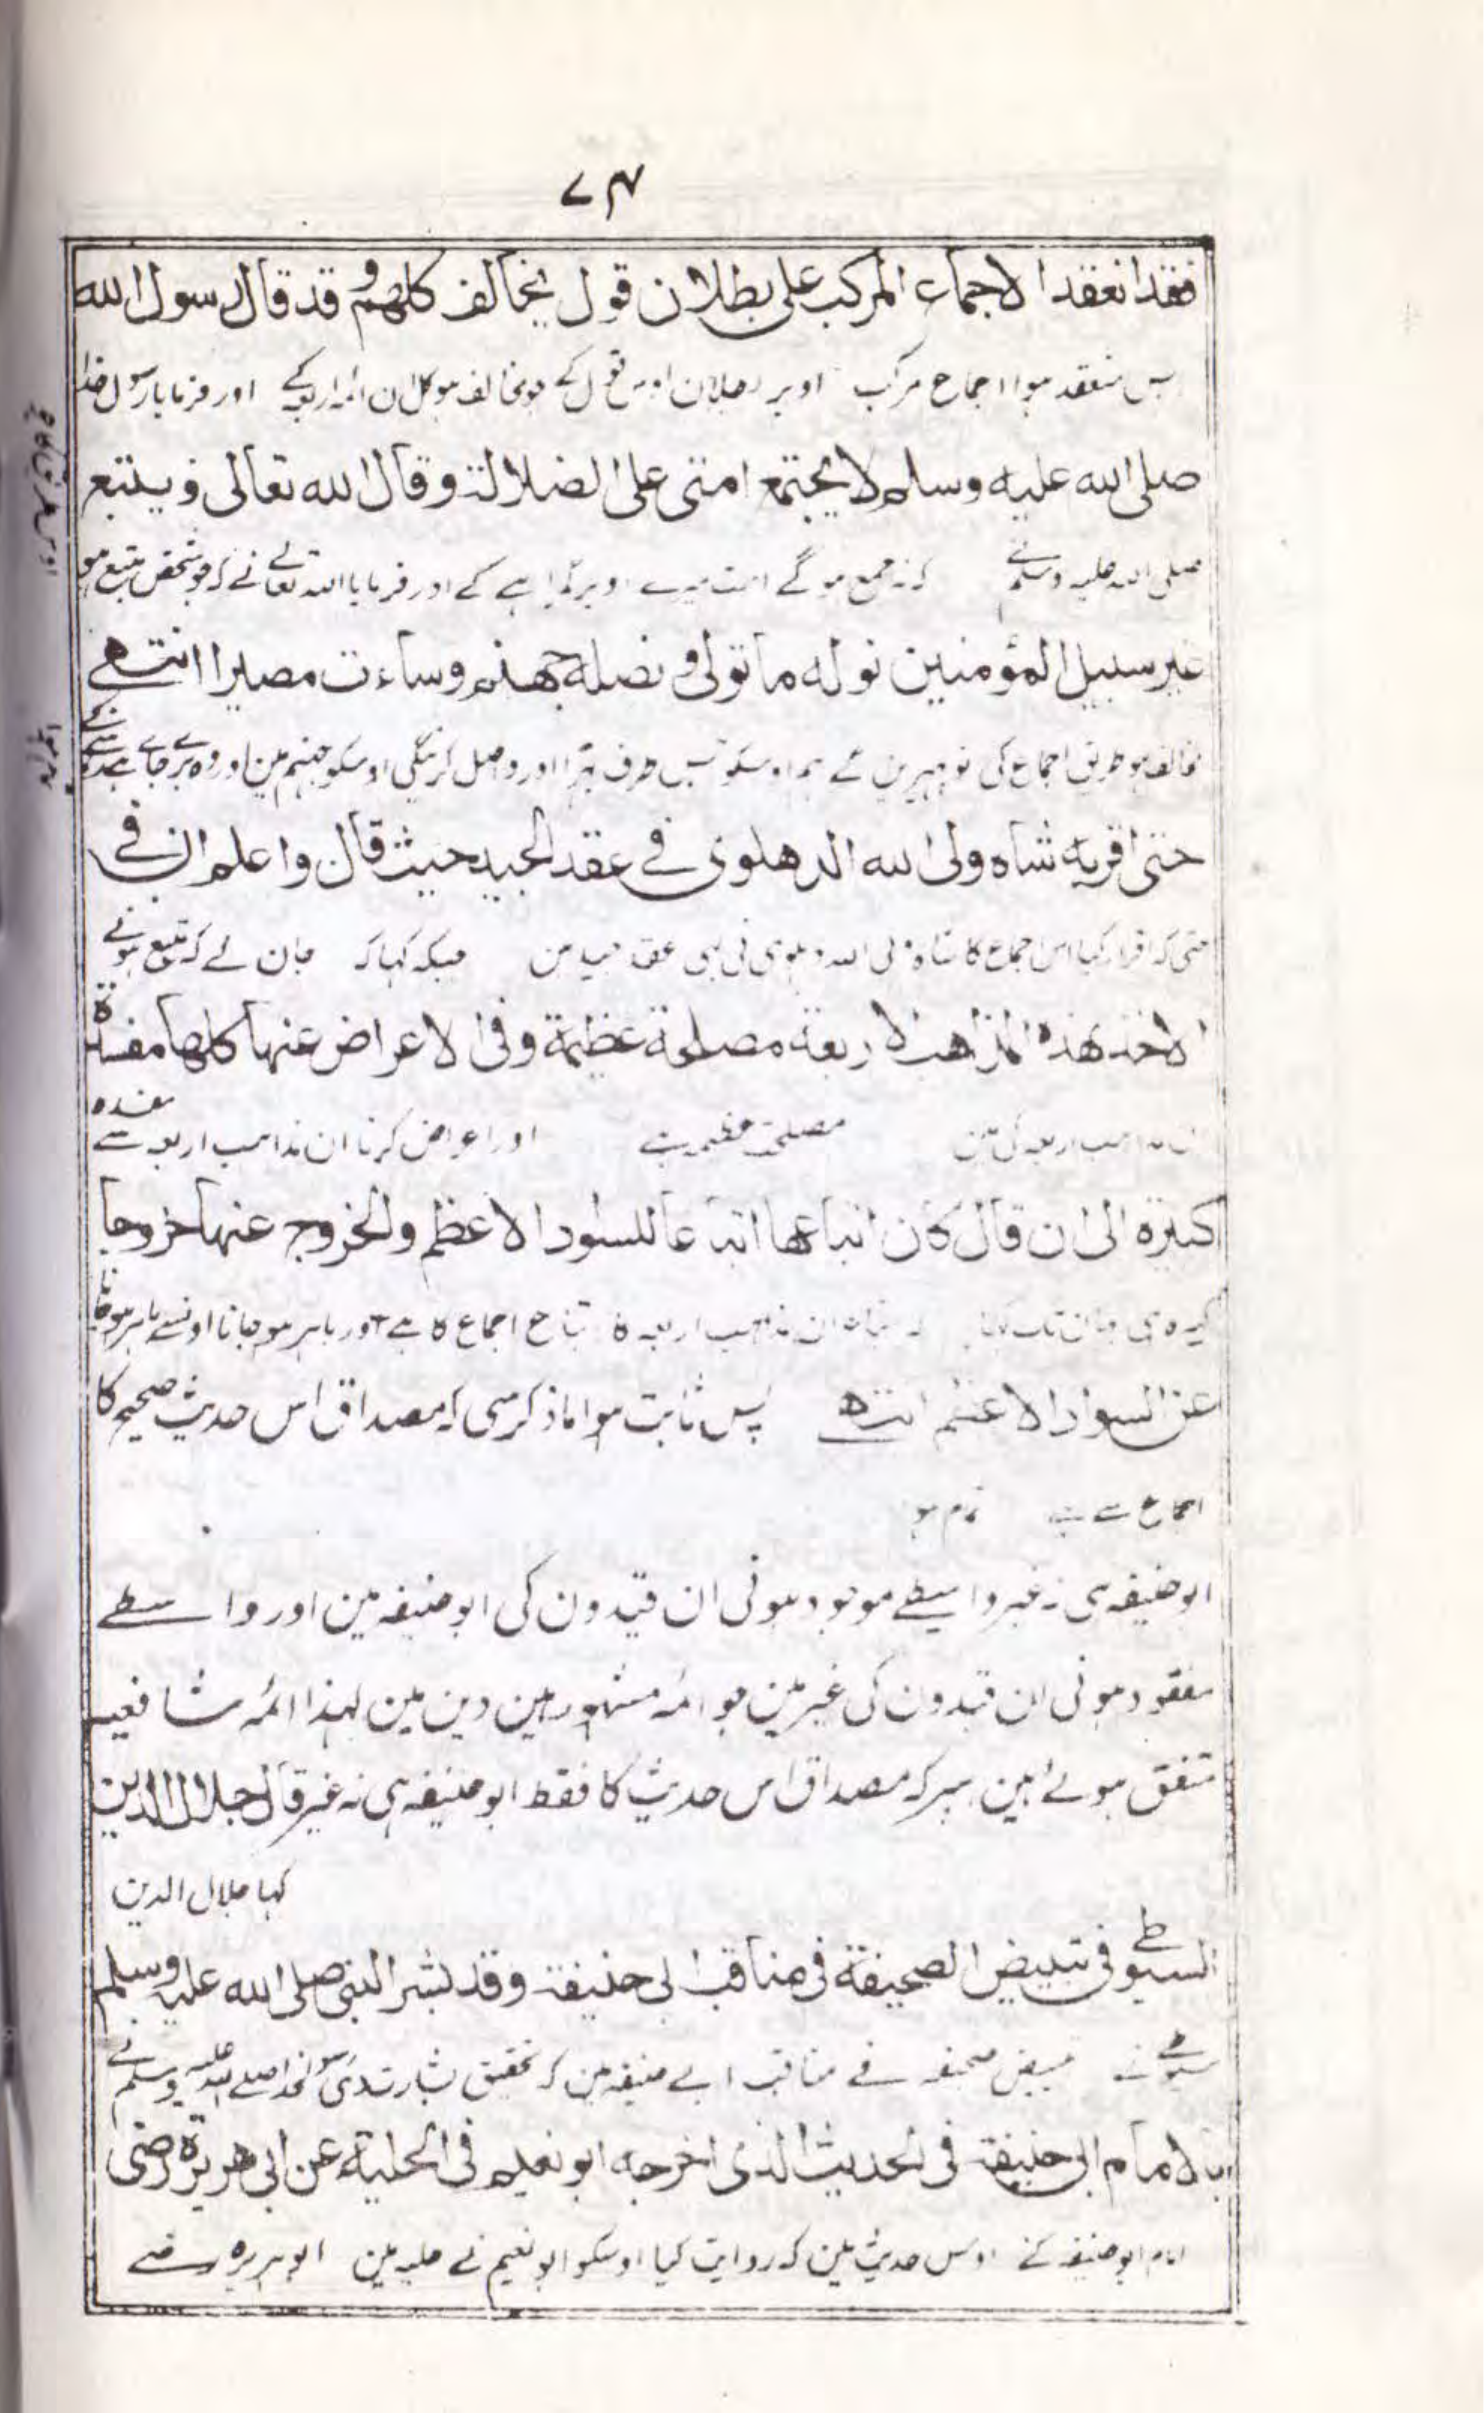 ۷۴
فقد انعقد الاجماع المرکب علی بطلان قول یخالف کلهم و قد قال رسول الله
پس منعقد ہوا اجماع مرکب اوپر بطلان اوس قول کے جو مخالف ہو کل ان ائمہ اربعہ کے اور فرمایا رسول خدا
صلی الله علیه وسلم لا یجتمع امتی علی الضلالة و قال الله تعالی و یتبع
صلی اللہ علیہ وسلم نے کہ نہ جمع ہوگے امت میرے اوپر گمراہے کے اور فرمایا اللہ تعالے نے کہ جو شخص متبع ہو
غیر سبیل المؤمنین نوله ما تولی و نصله جهنم وساءت مصیرا انتهے
مخالف ہو طریق اجماع کی تو پہیرین گے ہم اوسکو جس طرف پہرا اور داخل کرینگی اوسکو جہنم مین اور وہ برے جاے ہے
حتی اقر به شاه ولی الله الدهلوی فے عقد الجید حیث قال واعلم ان فے
حتی کہ اقرار کیا اس اجماع کا شاہ ولی اللہ دہلوی نی بہی عقد جید مین جبکہ کہا کہ جان لے کہ متبع ہونے
الاخذ بهذه المذاهب الاربعة مصلحة عظیمة وفی الاعراض عنها کلها مفسدة
ان مذاہب اربعہ کی مین مصلحت عظیمہ ہے اور اعراض کرنا ان مذاہب اربعہ سے مفسدہ
کبیرة الی ان قال کان اتباعها اتباعا للسواد الاعظم والخروج عنها خروجا
کبیرہ ہی یہان تک کہا کہ اتباع ان مذاہب اربعہ کا اتباع اجماع کا ہے اور باہر ہو جانا اونسے باہر ہو جانا
عن السواد الاعظم انتهے پس ثابت ہوا ماذکر سی کہ مصداق اس حدیث صحیح کا
اجماع سے ہے تمام ہوا
ابو حنیفہ ہی نہ غیر واسطے موجود ہونی ان قیدون کی ابو حنیفہ مین اور واسطے
مفقود ہونی ان قیدون کی غیر مین جو ائمہ مشہور ہین دین مین لہذا ائمہ شافعیہ
متفق ہوئے ہین ہر کہ مصداق اس حدیث کا فقط ابو حنیفہ ہی نہ غیر قال جلال الدین
کہا جلال الدین
السیوطے فی تبییض الصحیفة فی مناقب ابی حنیفة وقد بشر النبی صلی الله علیه وسلم
سیوطے نے تبییض صحیفہ فے مناقب ابے حنیفہ مین کہ تحقیق بشارت دی رسول خدا صلے اللہ علیہ وسلم نے
بالامام ابی حنیفة فی الحدیث الذی اخرجه ابو نعیم فی الحلیة عن ابی هریرة رضی
امام ابو حنیفہ کے اوس حدیث مین کہ روایت کیا اوسکو ابو نعیم نے حلیہ مین ابو ہریرہ رضے